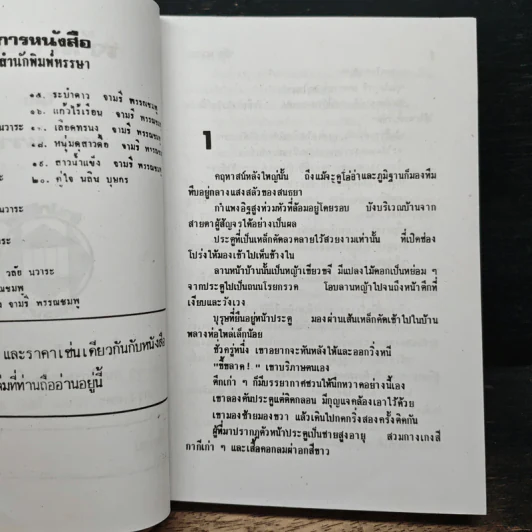 การหนังสือ
สำนักพิมพ์หรรษา
๑๕. ระบำดาว จามรี พรรณชมพู
๑๖. แก้วไร้เรือน จามรี พรรณชมพู
นวาระ ๑๗. เลือดทรนง จามรี พรรณชมพู
๑๘. หนุ่มดุสาวดื้อ จามรี พรรณชมพู
๑๙. สาวน้ำแข็ง จามรี พรรณชมพู
ระ ๒๐. คู่ใจ นลิน บุษกร
นวาระ
าระ
วลัย นวาระ
ณชมพู
ง จามรี พรรณชมพู
และราคาเช่นเดียวกันกับหนังสือ
ล่มที่ท่านถืออ่านอยู่นี้
1
คฤหาสน์หลังใหญ่นั้น ถึงแม้จะดูโอ่อ่าและภูมิฐานก็มองทึม
ทึบอยู่กลางแสงสลัวของสนธยา
กำแพงอิฐสูงท่วมหัวที่ล้อมอยู่โดยรอบ บังบริเวณบ้านจาก
สายตาผู้สัญจรได้อย่างเป็นผล
ประตูที่เป็นเหล็กดัดลวดลายไว้สวยงามเท่านั้น ที่เปิดช่อง
โปร่งให้มองเข้าไปเห็นข้างใน
ลานหน้าบ้านนั้นเป็นหญ้าเขียวขจี มีแปลงไม้ดอกเป็นหย่อม ๆ
จากประตูไปเป็นถนนโรยกรวด โอบลานหญ้าไปจนถึงหน้าตึกที่
เงียบและวังเวง
บุรุษที่ยืนอยู่หน้าประตู มองผ่านเส้นเหล็กดัดเข้าไปในบ้าน
พลางห่อไหล่เล็กน้อย
ชั่วครู่หนึ่ง เขาอยากจะหันหลังให้และออกวิ่งหนี
“ขี้ขลาด !” เขาบริภาษตนเอง
ตึกเก่า ๆ ก็มีบรรยากาศชวนให้นึกหวาดอย่างนี้เอง
เขาลองดันประตูแต่ติดกลอน มีกุญแจคล้องเอาไว้ด้วย
เขามองซ้ายมองขวา แล้วเดินไปกดกริ่งสองครั้งติดกัน
ผู้ที่มาปรากฏตัวหน้าประตูเป็นชายสูงอายุ สวมกางเกงสี
กากีเก่า ๆ และเสื้อคอกลมผ่าอกสีขาว